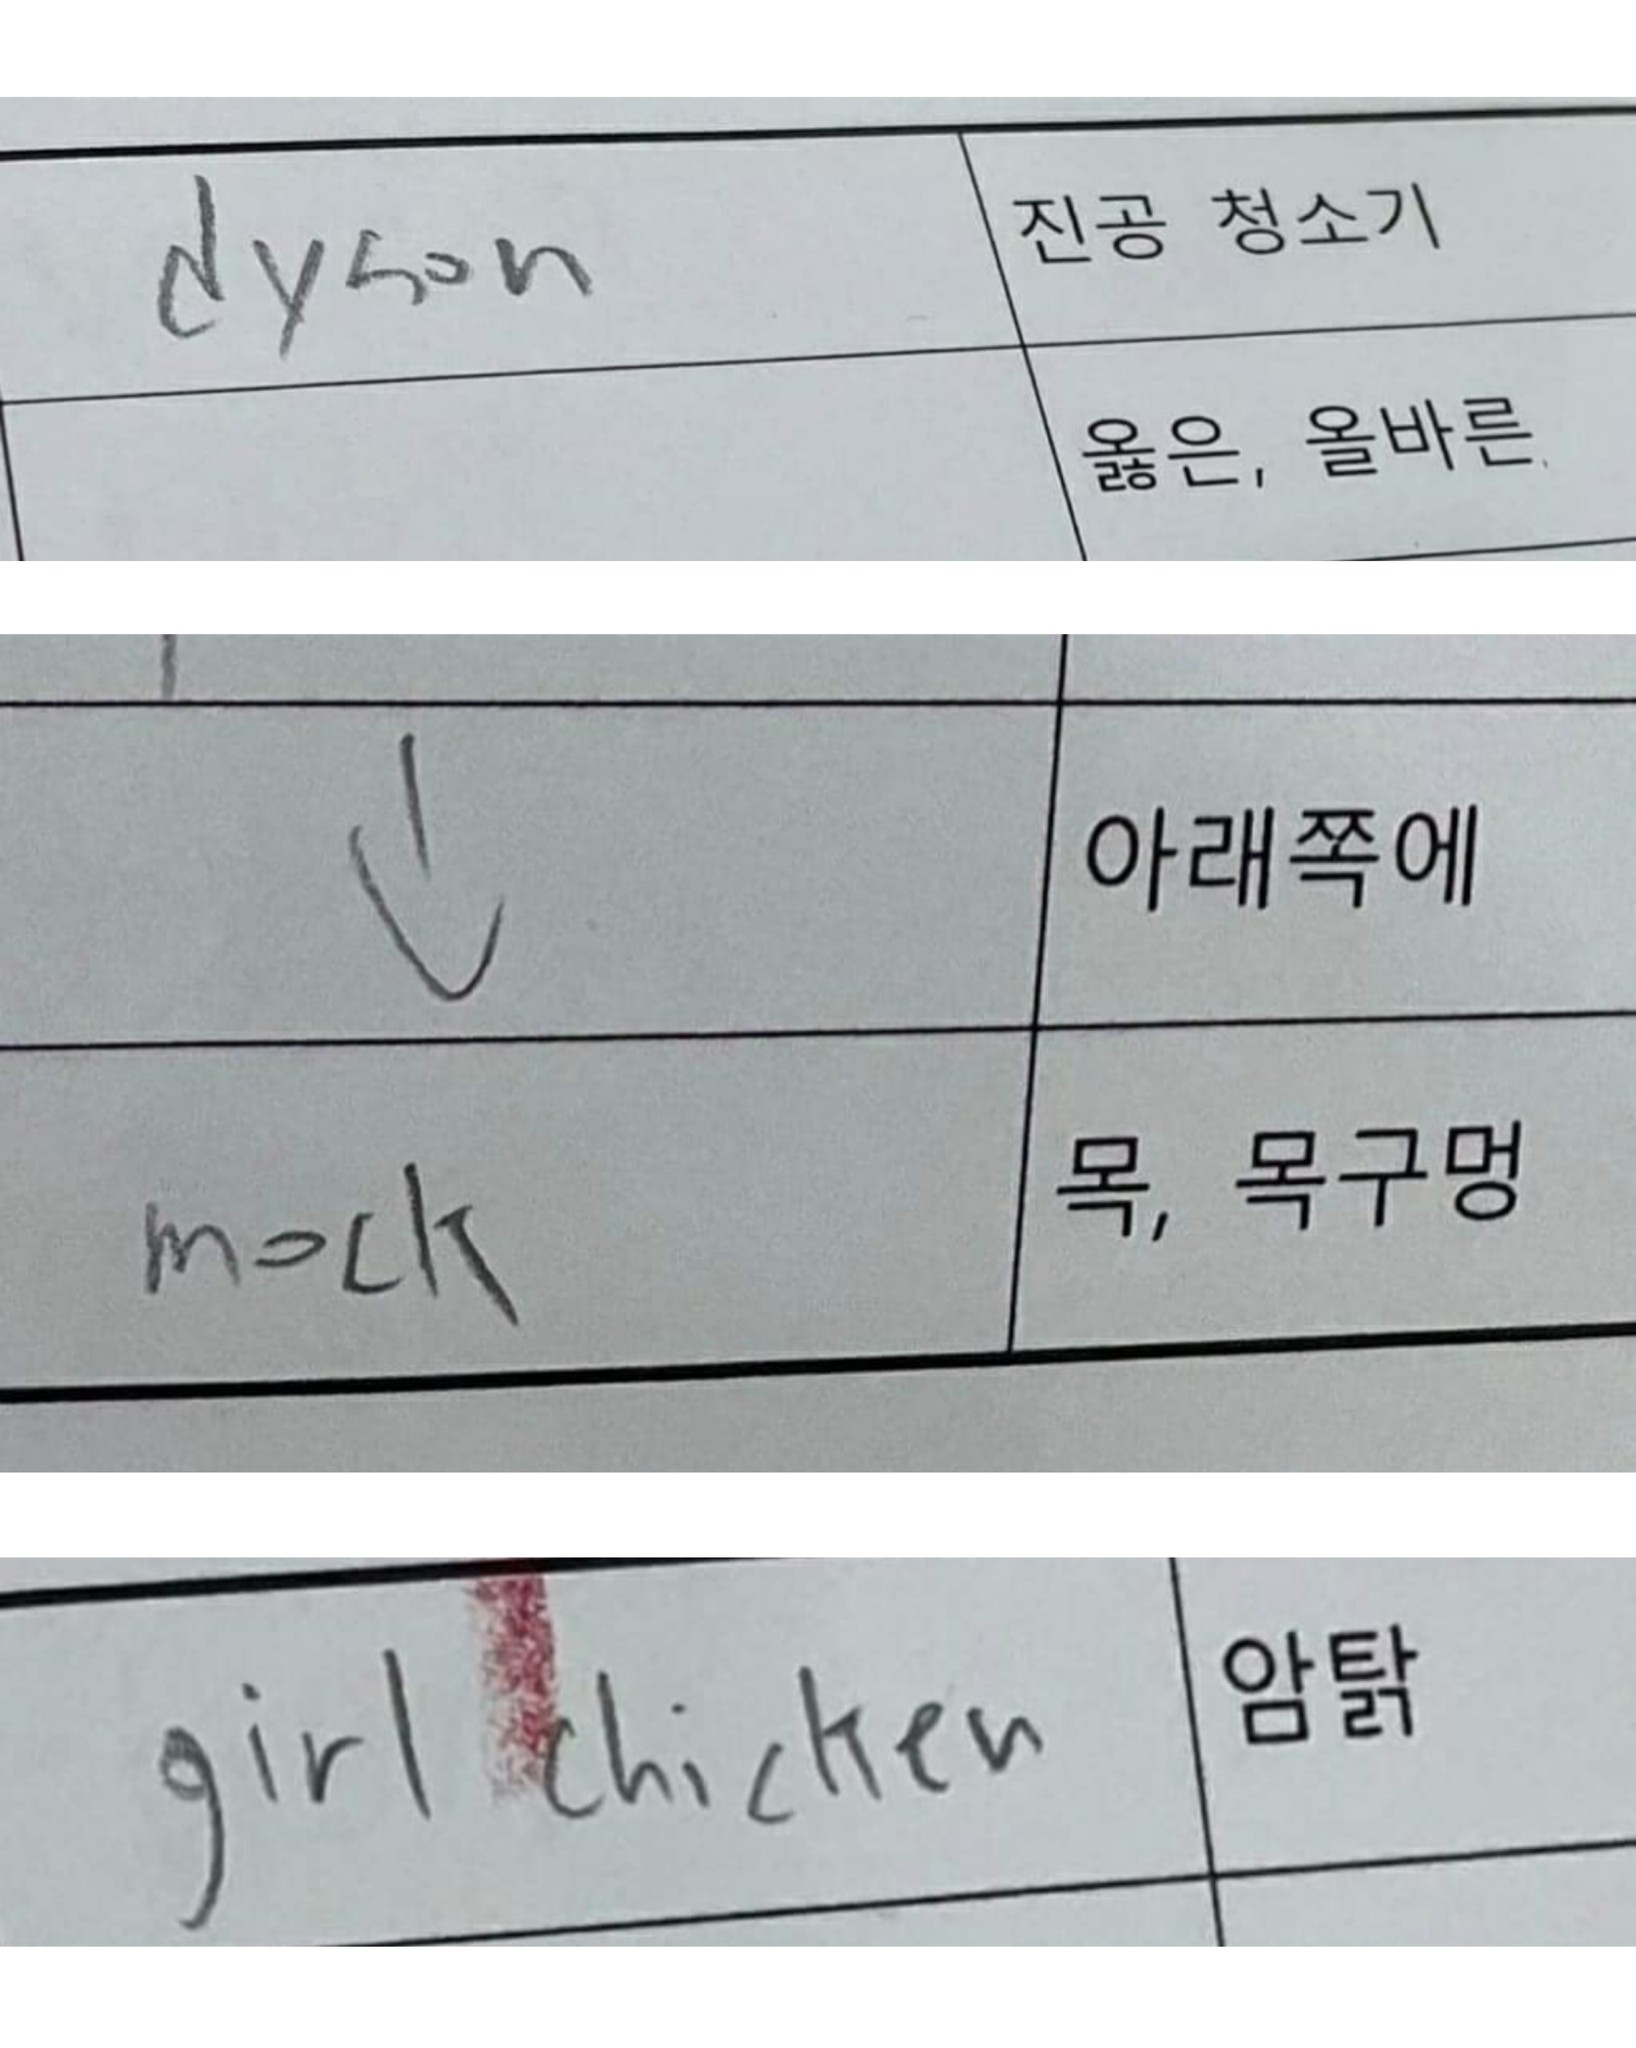 dyson 진공 청소기
옳은, 올바른
아래쪽에
mock 목, 목구멍
girl chicken 암탉